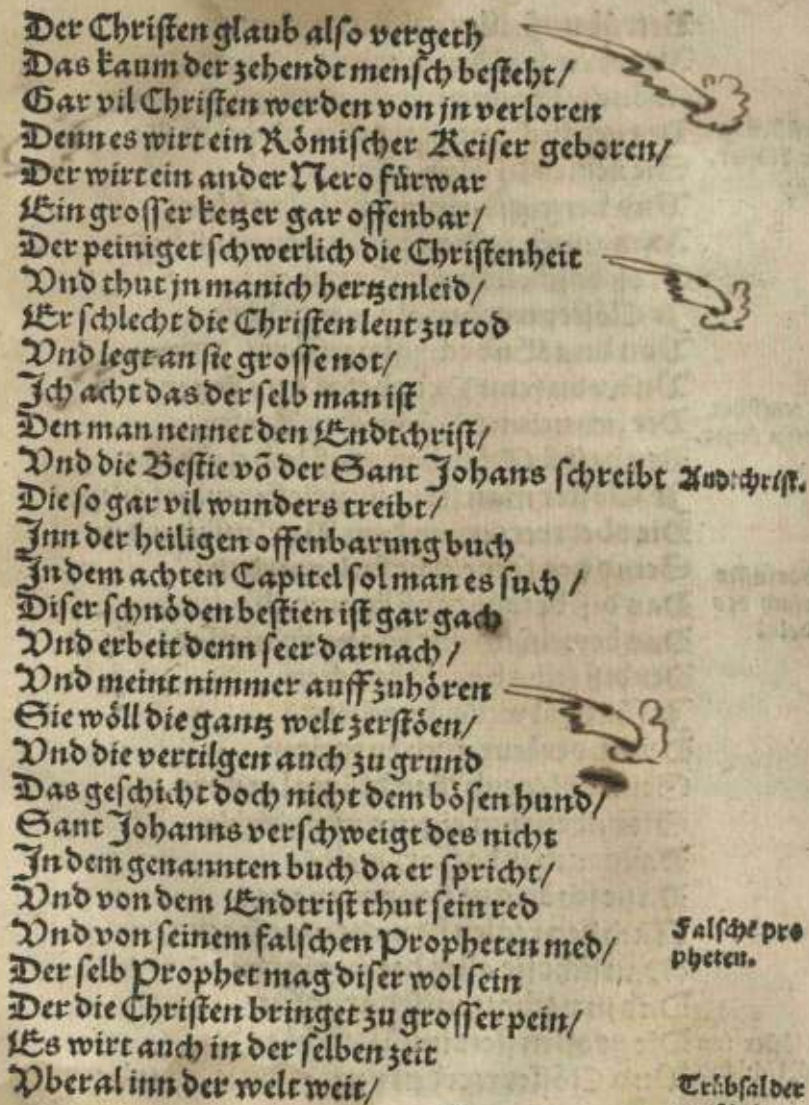 Der Christen glaub also vergeth
Das kaum der zehendt mensch besteht/
Gar vil Christen werden von jn verloren
Denn es wirt ein Römischer Keiser geboren/
Der wirt ein ander Nero fürwar
Ein grosser ketzer gar offenbar/
Der peiniget schwerlich die Christenheit
Vnd thut jn manich hertzenleid/
Er schlecht die Christen leut zu tod
Vnd legt an sie grosse not/
Ich acht das der selb man ist
Den man nennet den Endtchrist/
Vnd die Bestie võ der Sant Johans schreibt
Andtchrist.
Die so gar vil wunders treibt/
Inn der heiligen offenbarung buch
In dem achten Capitel sol man es such/
Diser schnöden bestien ist gar gach
Vnd erbeit denn seer darnach/
Vnd meint nimmer auff zuhören
Sie wöll die gantz welt zerstöen/
Vnd die vertilgen auch zu grund
Das geschicht doch nicht dem bösen hund/
Sant Johanns verschweigt des nicht
In dem genannten buch da er spricht/
Vnd von dem Endtrist thut sein red
Vnd von seinem falschen Propheten med/
Falsche pro
pheten.
Der selb Prophet mag diser wol sein
Der die Christen bringet zu grosser pein/
Es wirt auch in der selben zeit
Vberal inn der welt weit/
Trübsal der